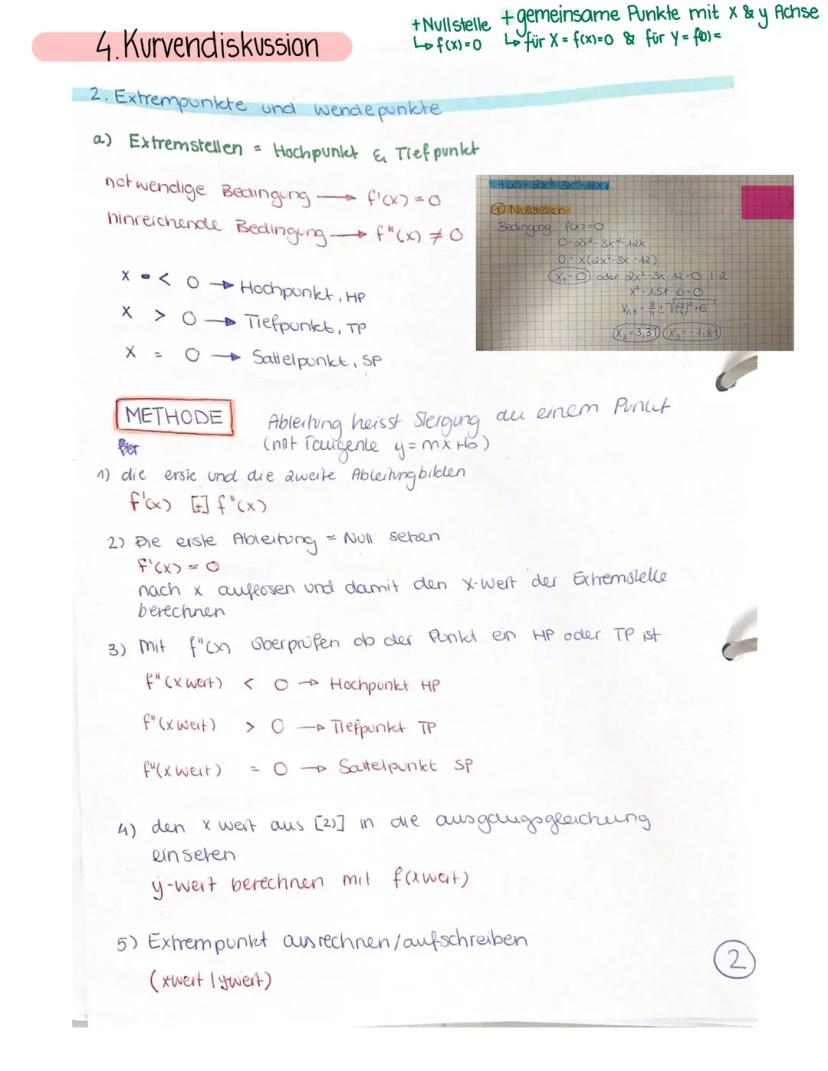 4. Kurvendiskussion
+Nullstelle
↳ f(x)=0
+gemeinsame Punkte mit x & y Achse
↳ für X = f(x)=0 & für Y = f(0)=
2. Extrempunkte und Wendepunkte
a) Extremstellen = Hochpunkt & Tiefpunkt
notwendige Bedingung → f'(x) = 0
hinreichende Bedingung → f"(x) ≠ 0
f(x) = 2x³-3x²-12x
① Nullstellen
Bedingung f(x)=0
0=2x³-3x²-12x
0= x(2x²-3x-12)
X₁=0 oder 2x²-3x-12=0 |:2
x²-1,5x-6=0
x < 0 → Hochpunkt, HP
x > 0 → Tiefpunkt, TP
x = 0 → Sattelpunkt, SP
METHODE
Ableitung heisst Steigung an einem Punkt
(mit Tangente y=mx+b)
1) die erste und die zweite Ableitung bilden
f'(x) [+] f"(x)
2) Die erste Ableitung = Null setzen
f'(x) = 0
nach x auflösen und damit den x-Wert der Extremstelle
berechnen
3) Mit f"(x) überprüfen ob der Punkt ein HP oder TP ist
f"(xwert) < 0 → Hochpunkt HP
f"(xwert) > 0 → Tiefpunkt TP
f"(xwert) = 0 → Sattelpunkt SP
4) den x wert aus [2)] in die ausgangsgleichung
einsetzen
y-wert berechnen mit f(xwert)
5) Extrempunkt ausrechnen/aufschreiben
(xwert | ywert)
2